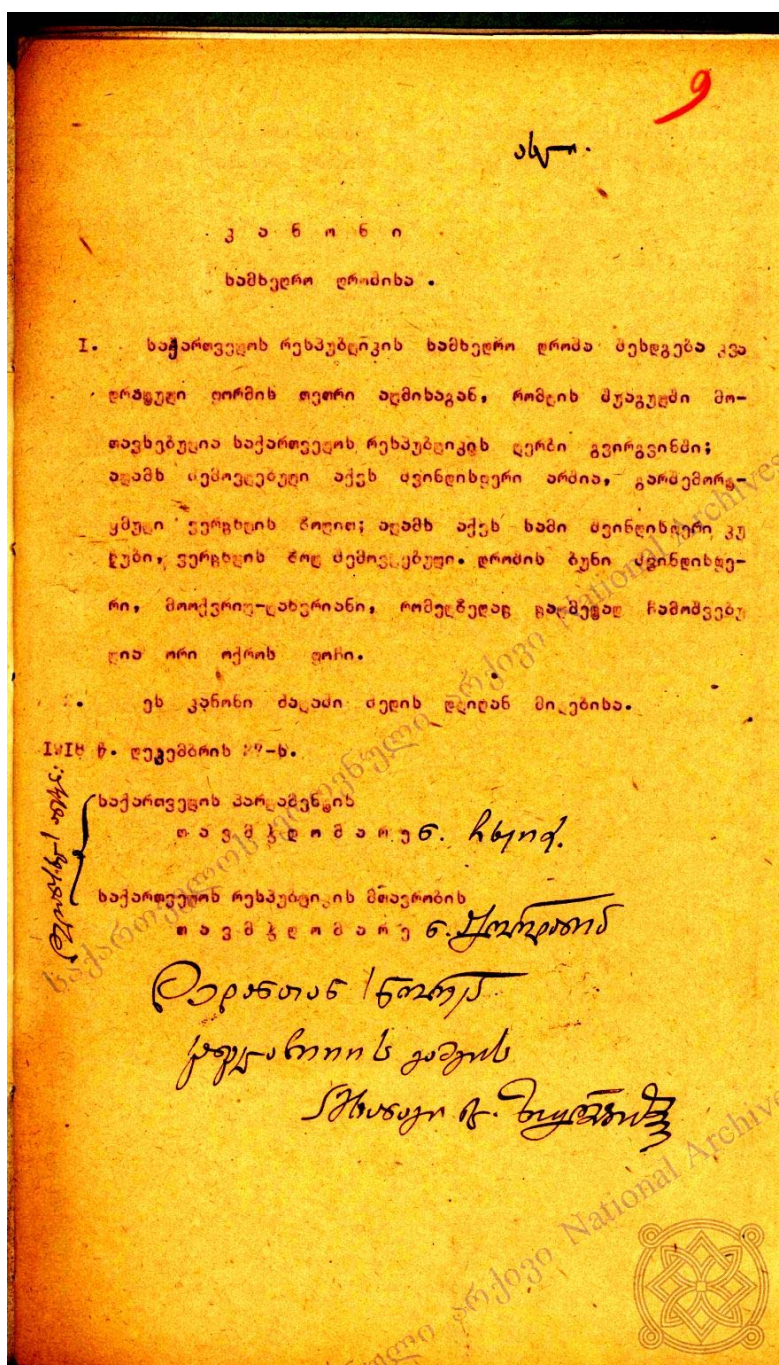 9
ასლი.
კ ა ნ ო ნ ი
სამხედრო დროშისა.
I. საქართველოს რესპუბლიკის სამხედრო დროშა შესდგება კვა
დრატული ფორმის თეთრი ალმისაგან, რომლის შუაგულში მო-
თავსებულია საქართველოს რესპუბლიკის ღერბი გვირგვინში;
ალამს შემოვლებული აქვს შვინდისფერი არშია, გარშემორტ-
ყმული ვერცხლის ზოლით; ალამს აქვს სამი შვინდისფერი კუ
ღუბი, ვერცხლის ზოლ შემოვლებული. დროშის ბუნი შვინდისფე-
რი, მოოქვრილ-ლახვრიანი, რომელზედაც ცალმეფად ჩამოშვებუ
ლია ორი ოქროს ფოჩი.
2. ეს კანონი ძალაში შედის დღიდან მიღებისა.
1918 წ. დეკემბრის 27-ს.
საქართველოს პარლამენტის
თ ა ვ მ ჯ დ ო მ ა რ ე ნ. ჩხეიძე.
საქართველოს რესპუბლიკის მთავრობის
თ ა ვ მ ჯ დ ო მ ა რ ე ნ. ჟორდანია
დედანთან სწორია
საქართველოს ეროვნული არქივი National Archives
არქივი National Archives